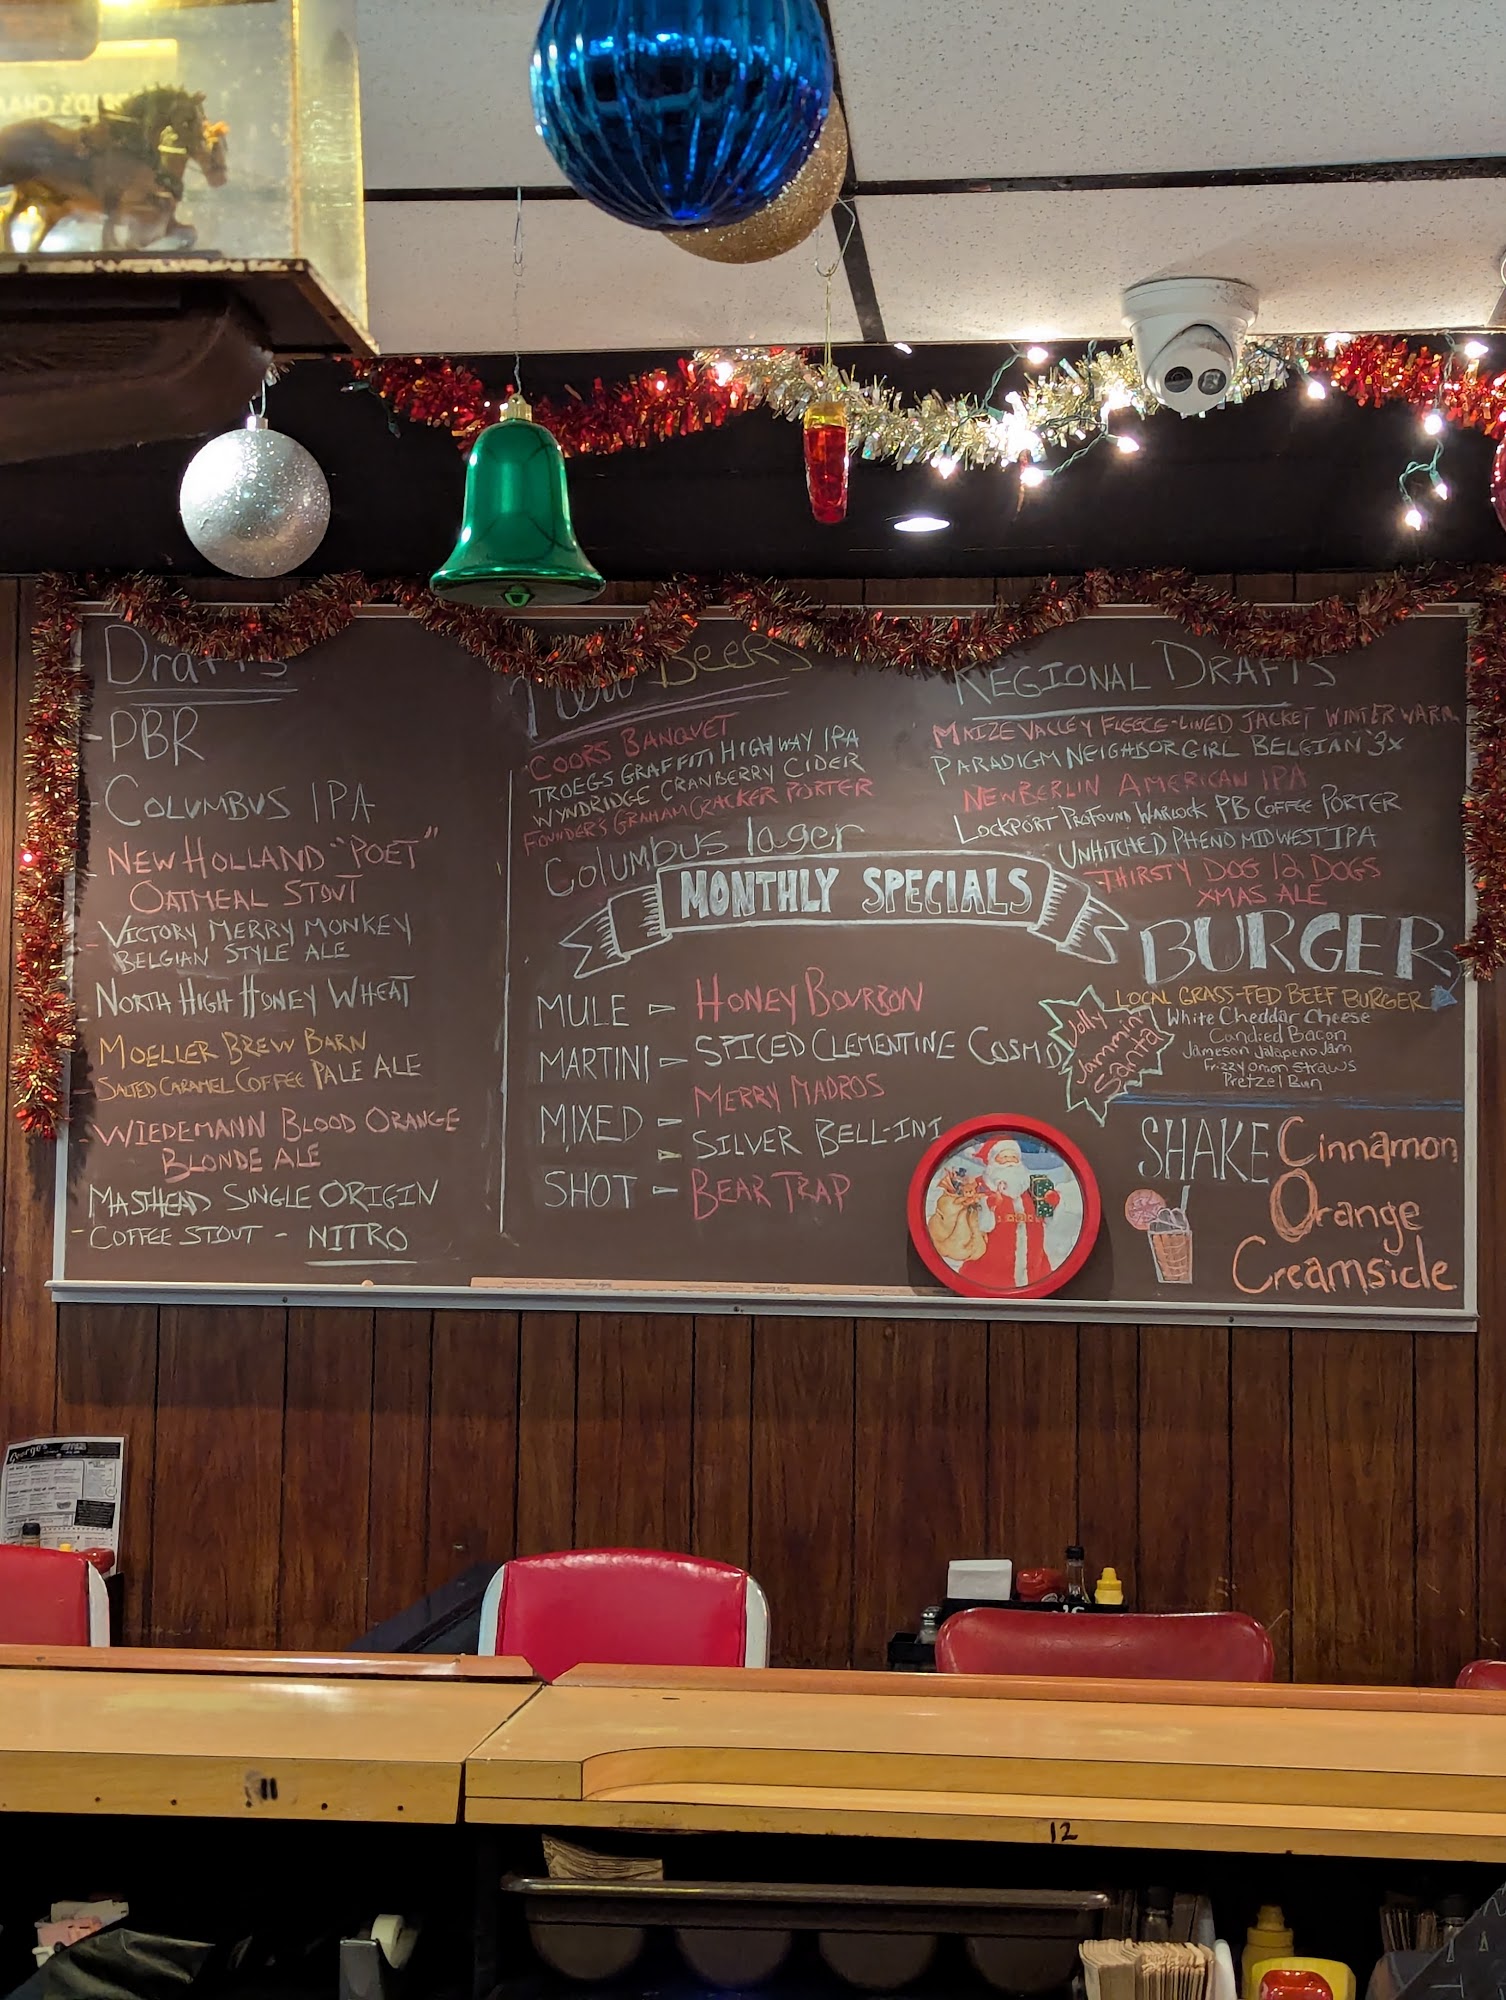 Drafts
PBR
COLUMBUS IPA
NEW HOLLAND "POET"
OATMEAL STOUT
VICTORY MERRY MONKEY
BELGIAN STYLE ALE
NORTH HIGH HONEY WHEAT
MOELLER BREW BARN
SALTED CARAMEL COFFEE PALE ALE
WIEDEMANN BLOOD ORANGE
BLONDE ALE
MASTHEAD SINGLE ORIGIN
COFFEE STOUT - NITRO
New BEERS
COORS BANQUET
TROEGS GRAFFITI HIGHWAY IPA
WYNDRIDGE CRANBERRY CIDER
FOUNDER'S GRAHAM CRACKER PORTER
Columbus lager
REGIONAL DRAFTS
MAIZE VALLEY FLEECE-LINED JACKET WINTER WARM
PARADIGM NEIGHBOR GIRL BELGIAN 3X
NEW BERLIN AMERICAN IPA
LOCKPORT PROFOUND WARLOCK PB COFFEE PORTER
UNHITCHED PHENO MIDWEST IPA
THIRSTY DOG 12 DOGS
XMAS ALE
MONTHLY SPECIALS
MULE HONEY BOURBON
MARTINI SPICED CLEMENTINE COSMO
MIXED MERRY MADROS
SILVER BELL-INI
SHOT BEAR TRAP
BURGER
LOCAL GRASS-FED BEEF BURGER
Jolly
Jammin
Santa
White Cheddar Cheese
Candied Bacon
Jameson Jalapeno Jam
Frizzy onion straws
Pretzel Bun
SHAKE Cinnamon
Orange
Creamsicle
George's
11
12